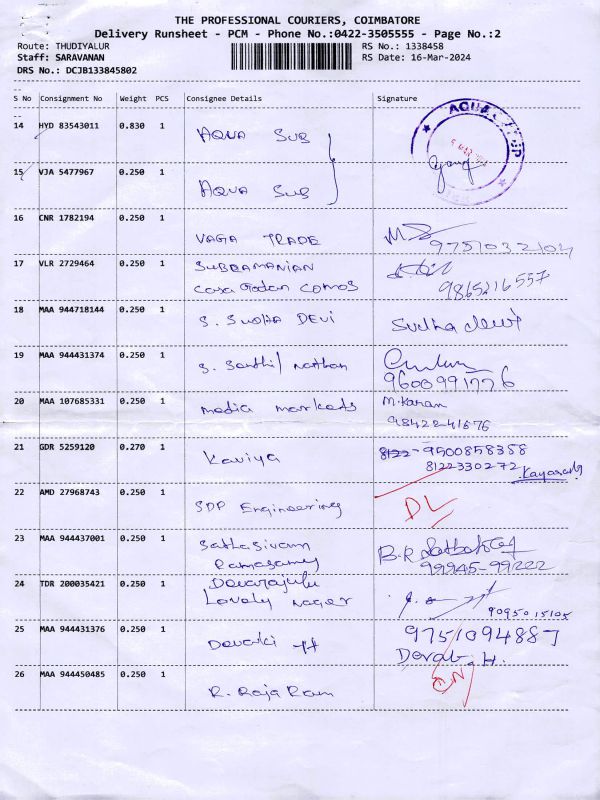 THE PROFESSIONAL COURIERS, COIMBATORE
Delivery Runsheet - PCM - Phone No.:0422-3505555 - Page No.:2
Route: THUDIYALUR RS No.: 1338458
Staff: SARAVANAN RS Date: 16-Mar-2024
DRS No.: DCJB133845802
S No Consignment No Weight PCS Consignee Details Signature
14 HYD 83543011 0.830 1 AQUA SUB
15 VJA 5477967 0.250 1 AQUA SUB
16 CNR 1782194 0.250 1 VAGA TRADE
17 VLR 2729464 0.250 1 SUBRAMANIAN 9865216557
18 MAA 944718144 0.250 1 S. Sudha DEVI Sudha devi
19 MAA 944431374 0.250 1 S. Senthil Nathan
9600991776
20 MAA 107685331 0.250 1 media markets M.Karan
98422-41676
21 GDR 5259120 0.270 1 Kaviya 8122-9500858358
8122330272
22 AMD 27968743 0.250 1 SDP Engineering DL
23 MAA 944437001 0.250 1 Sathasivam
Ramasamy 99945-99222
24 TDR 200035421 0.250 1 Devarajulu
Lovely nagar 9095015105
25 MAA 944431376 0.250 1 Devaki 9751094887
26 MAA 944450485 0.250 1 R. Raja Ram